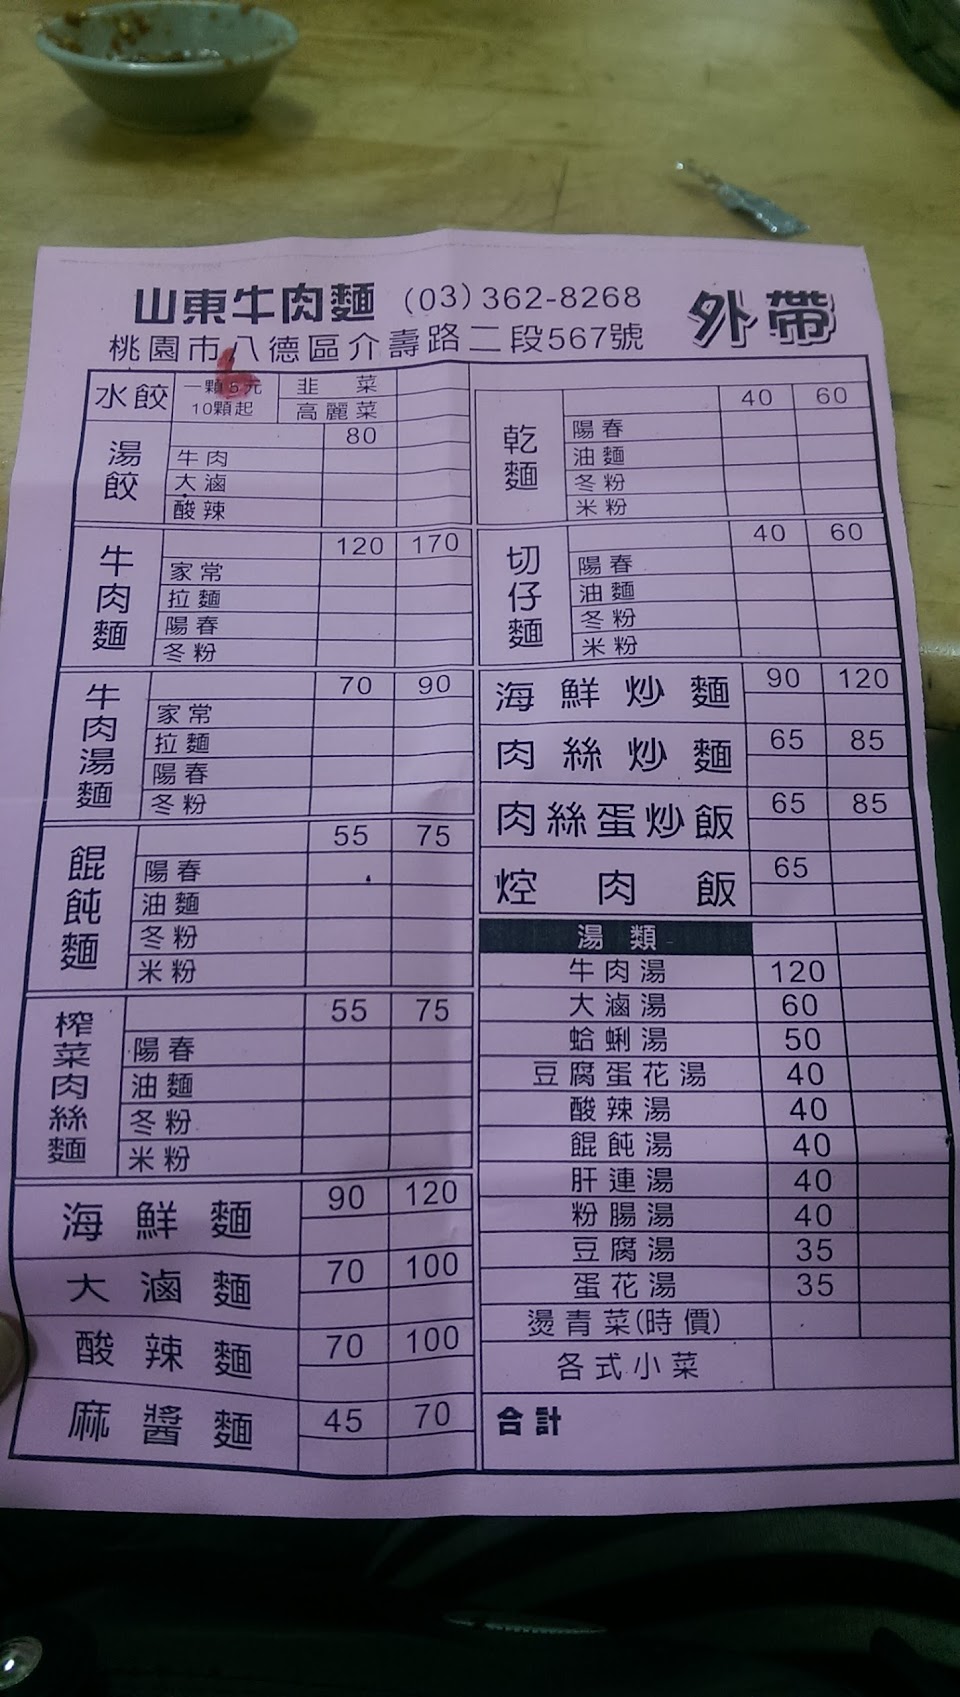 山東牛肉麵 (03) 362-8268 外帶
桃園市八德區介壽路二段567號
水餃 一顆6元 10顆起 韭菜
高麗菜
湯餃 80
牛肉
大滷
酸辣
牛肉麵 120 170
家常
拉麵
陽春
冬粉
牛肉湯麵 70 90
家常
拉麵
陽春
冬粉
餛飩麵 55 75
陽春
油麵
冬粉
米粉
榨菜肉絲麵 55 75
陽春
油麵
冬粉
米粉
海鮮麵 90 120
大滷麵 70 100
酸辣麵 70 100
麻醬麵 45 70
乾麵 40 60
陽春
油麵
冬粉
米粉
切仔麵 40 60
陽春
油麵
冬粉
米粉
海鮮炒麵 90 120
肉絲炒麵 65 85
肉絲蛋炒飯 65 85
焢肉飯 65
湯類
牛肉湯 120
大滷湯 60
蛤蜊湯 50
豆腐蛋花湯 40
酸辣湯 40
餛飩湯 40
肝連湯 40
粉腸湯 40
豆腐湯 35
蛋花湯 35
燙青菜(時價)
各式小菜
合計